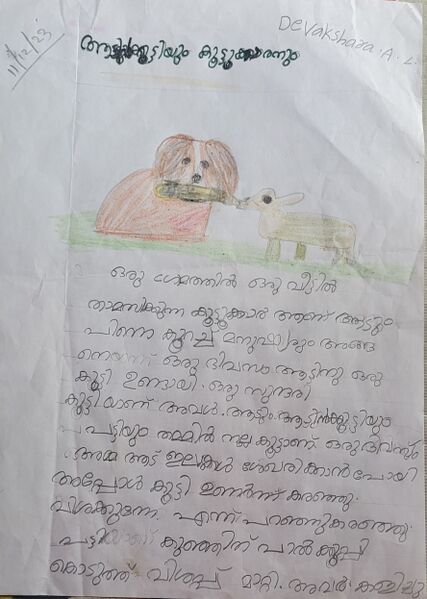 Devakshara. A. L
11/12/23
ആട്ടിൻകുട്ടിയും കൂട്ടുകാരനും
ഒരു ഗ്രാമത്തിൽ ഒരു വീട്ടിൽ
താമസിക്കുന്ന കൂട്ടുകാർ ആണ് ആട്ടും
പിന്നെ കുറച്ച് മനുഷ്യരും അങ്ങ
നെ ഒരു ദിവസം ആട്ടിനു ഒരു
കുട്ടി ഉണ്ടായി. ഒരു സുന്ദരി
കുട്ടിയാണ് അവൾ. ആടും ആട്ടിൻക്കുട്ടിയും
പട്ടിയും തമ്മിൽ നല്ല കൂട്ടാണ്. ഒരു ദിവസം
അമ്മ ആട് ഇലകൾ ശേഖരിക്കാൻ പോയി
അപ്പോൾ കുട്ടി ഉണർന്ന് കരഞ്ഞു.
വിശക്കുന്നേ. എന്ന് പറഞ്ഞുകരഞ്ഞു.
കുഞ്ഞിന് പാൽ ക്കുപ്പി
കൊടുത്ത് വിശപ്പ് മാറ്റി. അവർ കളിച്ചു